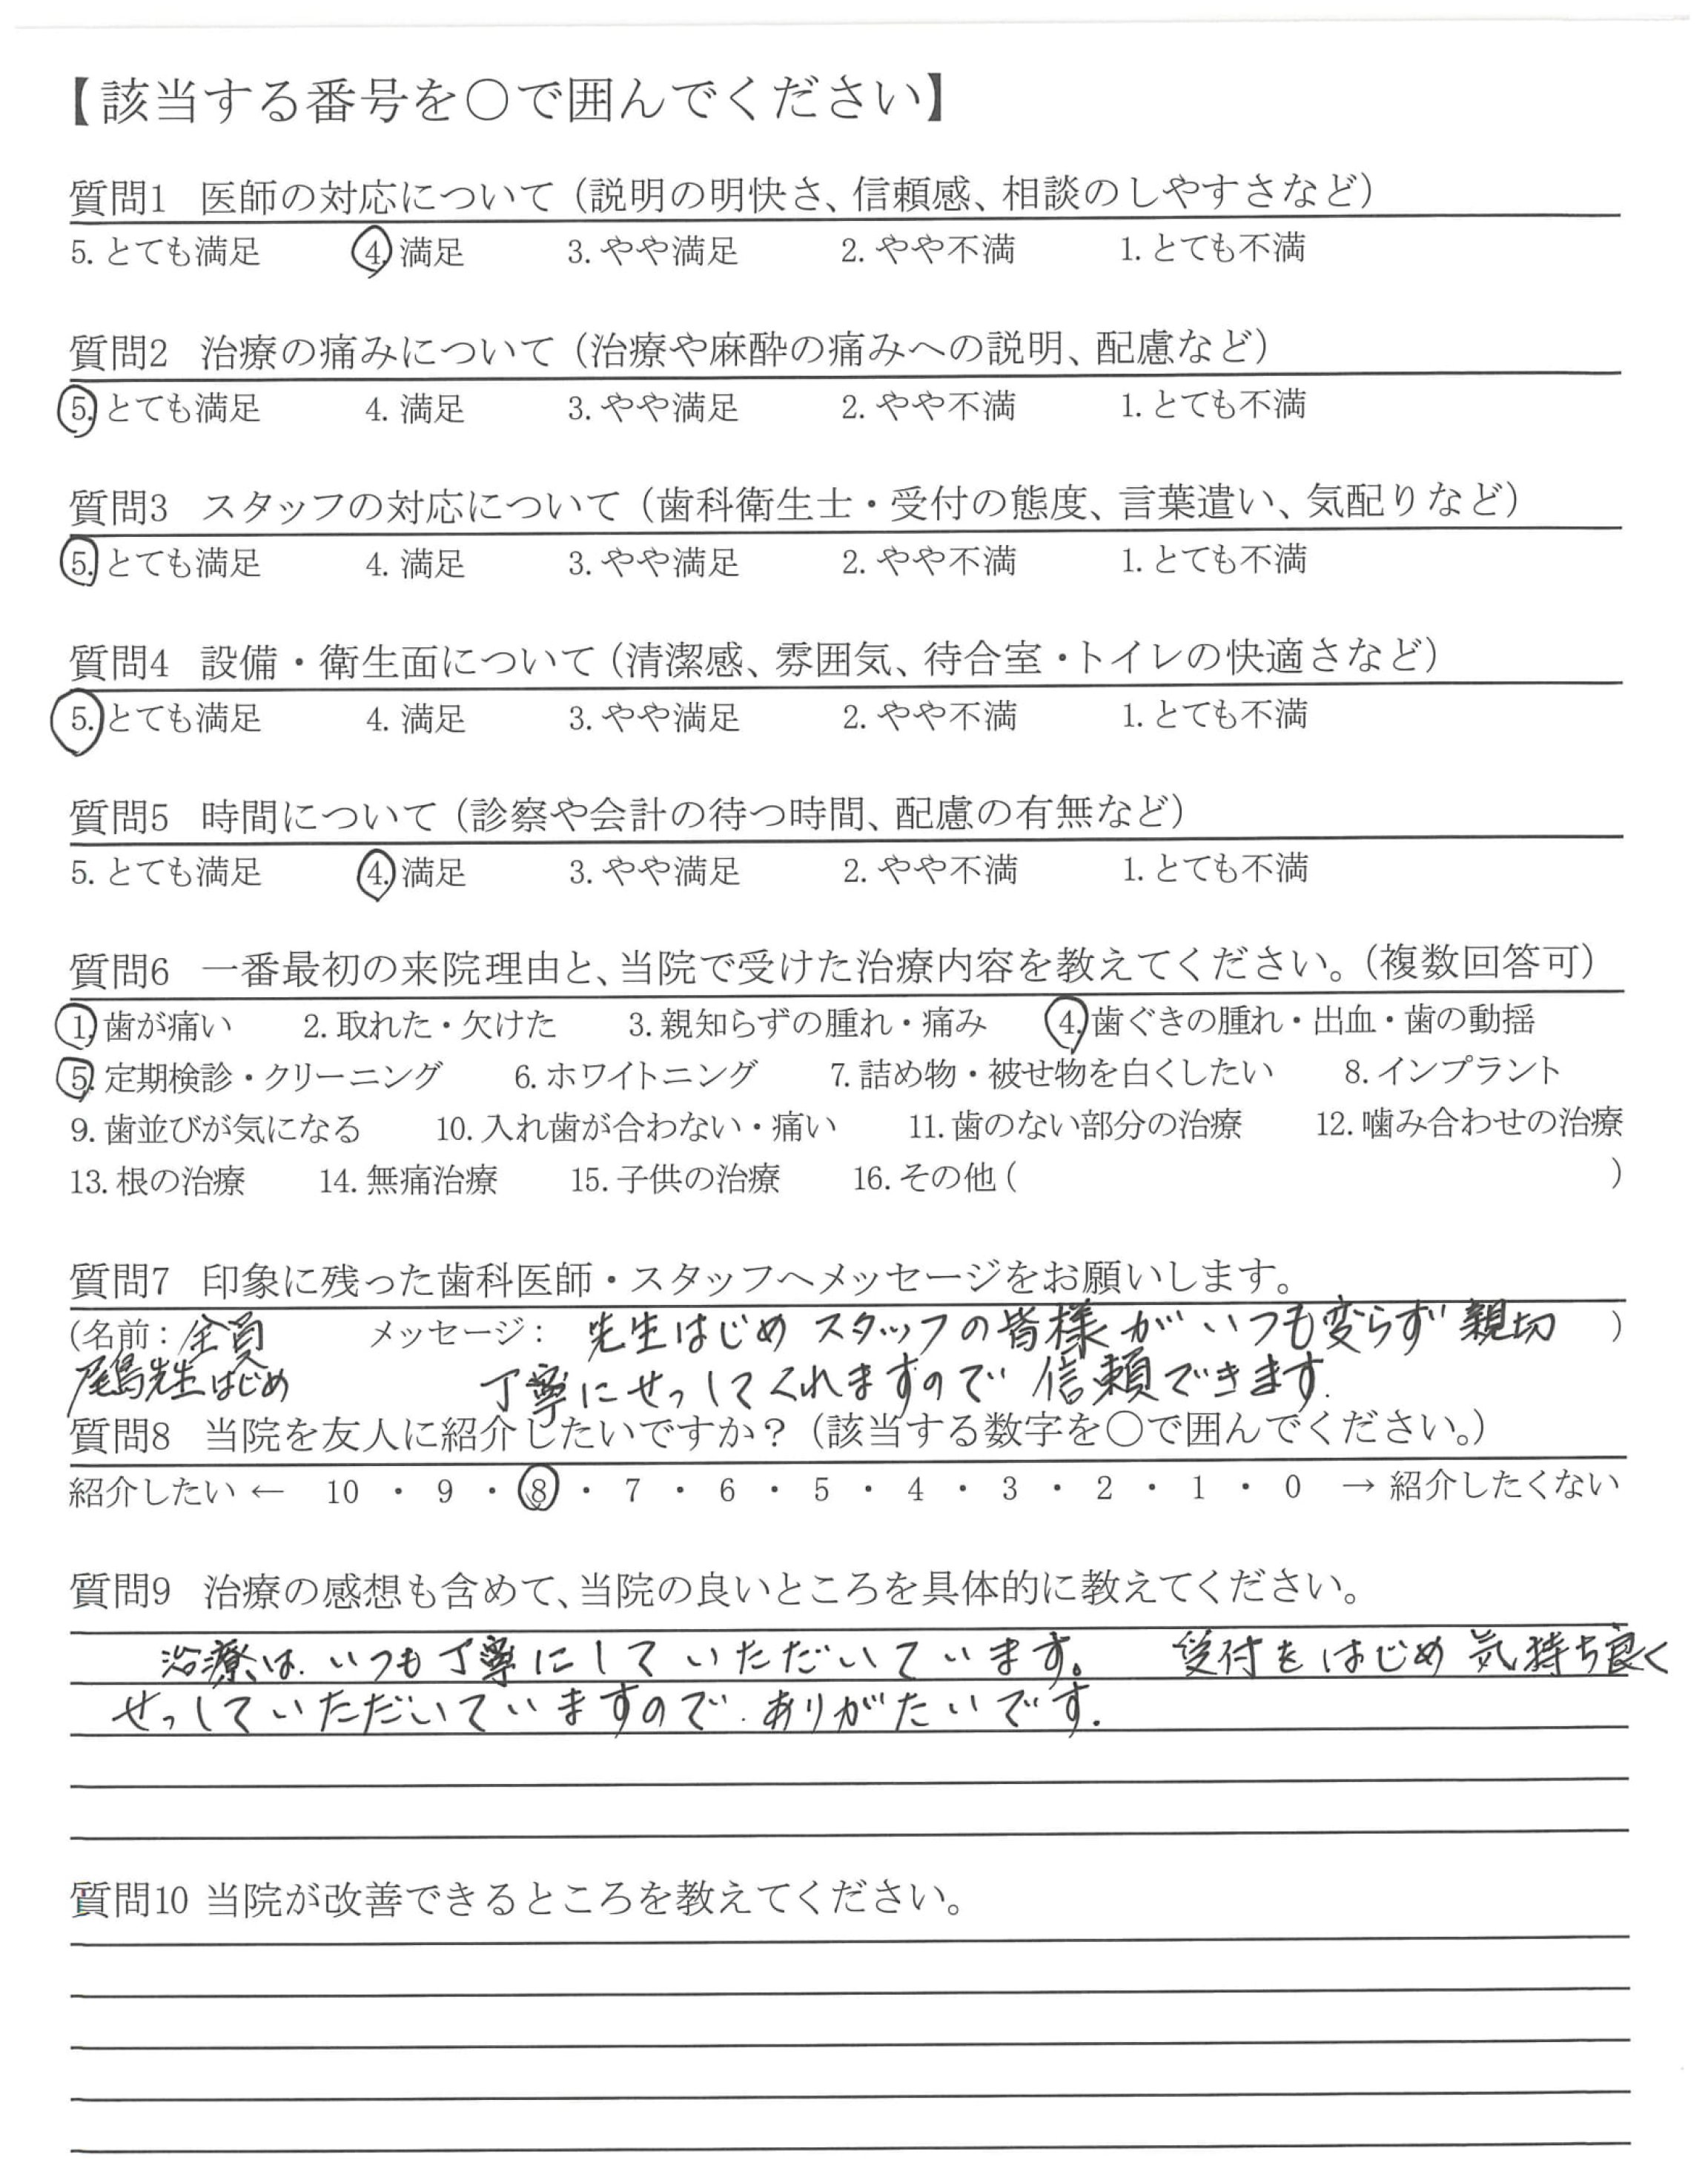 【該当する番号を○で囲んでください】
質問1 医師の対応について（説明の明快さ、信頼感、相談のしやすさなど）
5. とても満足 4. 満足 3. やや満足 2. やや不満 1. とても不満
質問2 治療の痛みについて（治療や麻酔の痛みへの説明、配慮など）
5. とても満足 4. 満足 3. やや満足 2. やや不満 1. とても不満
質問3 スタッフの対応について（歯科衛生士・受付の態度、言葉遣い、気配りなど）
5. とても満足 4. 満足 3. やや満足 2. やや不満 1. とても不満
質問4 設備・衛生面について（清潔感、雰囲気、待合室・トイレの快適さなど）
5. とても満足 4. 満足 3. やや満足 2. やや不満 1. とても不満
質問5 時間について（診察や会計の待つ時間、配慮の有無など）
5. とても満足 4. 満足 3. やや満足 2. やや不満 1. とても不満
質問6 一番最初の来院理由と、当院で受けた治療内容を教えてください。（複数回答可）
1. 歯が痛い 2. 取れた・欠けた 3. 親知らずの腫れ・痛み 4. 歯ぐきの腫れ・出血・歯の動揺
5. 定期検診・クリーニング 6. ホワイトニング 7. 詰め物・被せ物を白くしたい 8. インプラント
9. 歯並びが気になる 10. 入れ歯が合わない・痛い 11. 歯のない部分の治療 12. 噛み合わせの治療
13. 根の治療 14. 無痛治療 15. 子供の治療 16. その他（ ）
質問7 印象に残った歯科医師・スタッフへメッセージをお願いします。
（名前：全員 メッセージ： 先生はじめスタッフの皆様がいつも変らず親切 ）
尾島先生はじめ 丁寧にせっしてくれますので信頼できます.
質問8 当院を友人に紹介したいですか？（該当する数字を○で囲んでください。）
紹介したい ← 10 ・ 9 ・ 8 ・ 7 ・ 6 ・ 5 ・ 4 ・ 3 ・ 2 ・ 1 ・ 0 → 紹介したくない
質問9 治療の感想も含めて、当院の良いところを具体的に教えてください。
治療は、いつも丁寧にしていただいています。 受付をはじめ気持ち良く
せっしていただいていますので、ありがたいです.
質問10 当院が改善できるところを教えてください。